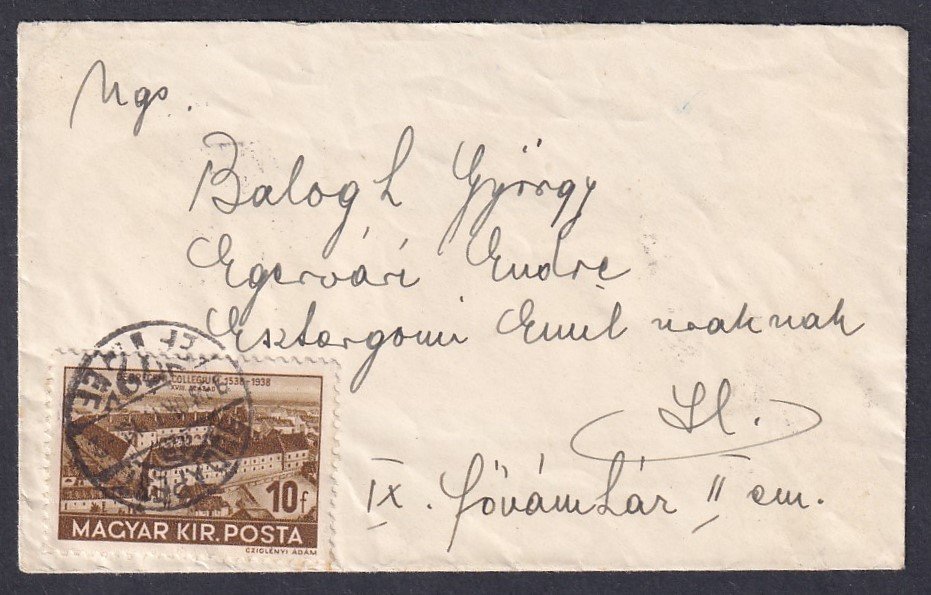 Ngs.
Balogh György
Egervári Endre
Esztergomi Emil uraknak
H.
IX. fővámhár II em.
COLLEGIUM 1538-1938
XVIII. SZÁZAD
10f
MAGYAR KIR. POSTA
CZIGLÉNYI ÁDÁM